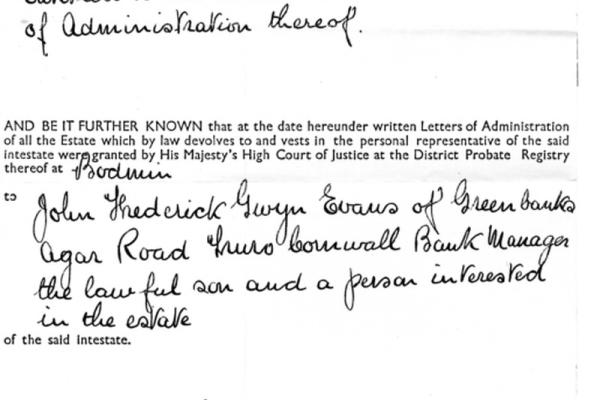 of Administration thereof.
AND BE IT FURTHER KNOWN that at the date hereunder written Letters of Administration
of all the Estate which by law devolves to and vests in the personal representative of the said
intestate were granted by His Majesty's High Court of Justice at the District Probate Registry
thereof at Bodmin
to John Frederick Gwyn Evans of Greenbanks
Agar Road Truro Cornwall Bank Manager
the lawful son and a person interested
in the estate
of the said Intestate.